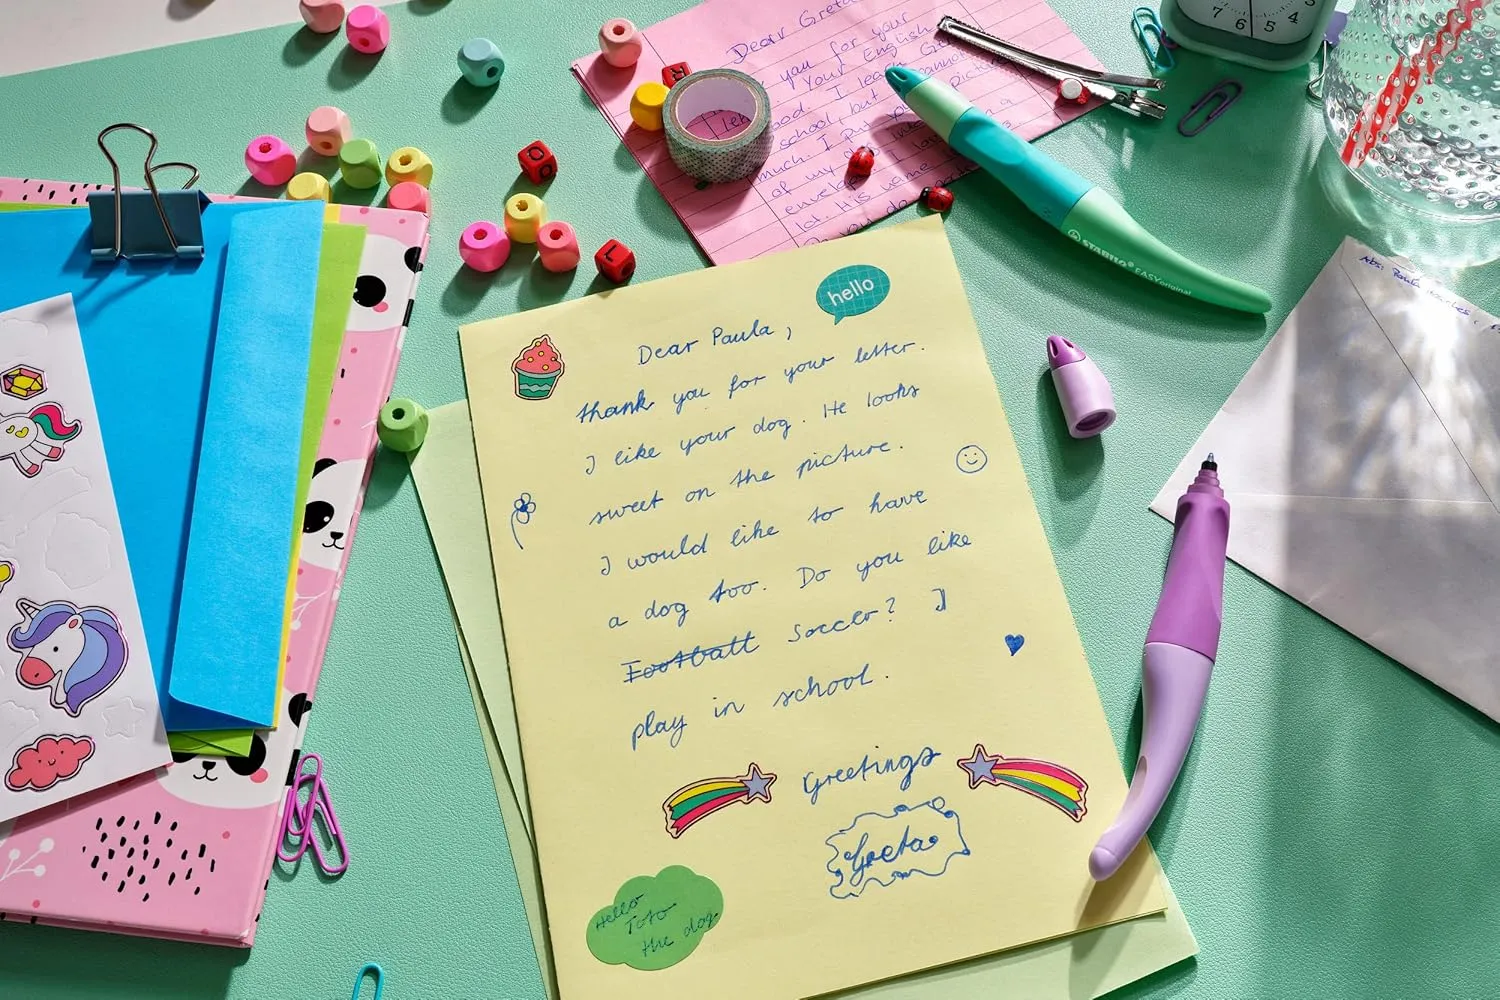 7 6 5 4 3
Dear Greta
you for your
Your English
good. I learn
school, but cannot
much. I put picture
of my
envelope
lot. His name
you do
R
L
STABILO® EASYoriginal
Abs: Paula
hello
Dear Paula,
thank you for your letter.
I like your dog. He looks
sweet on the picture.
I would like to have
a dog too. Do you like
Football Soccer? I
play in school.
Greetings
Greta
Hello
Toto
the dog